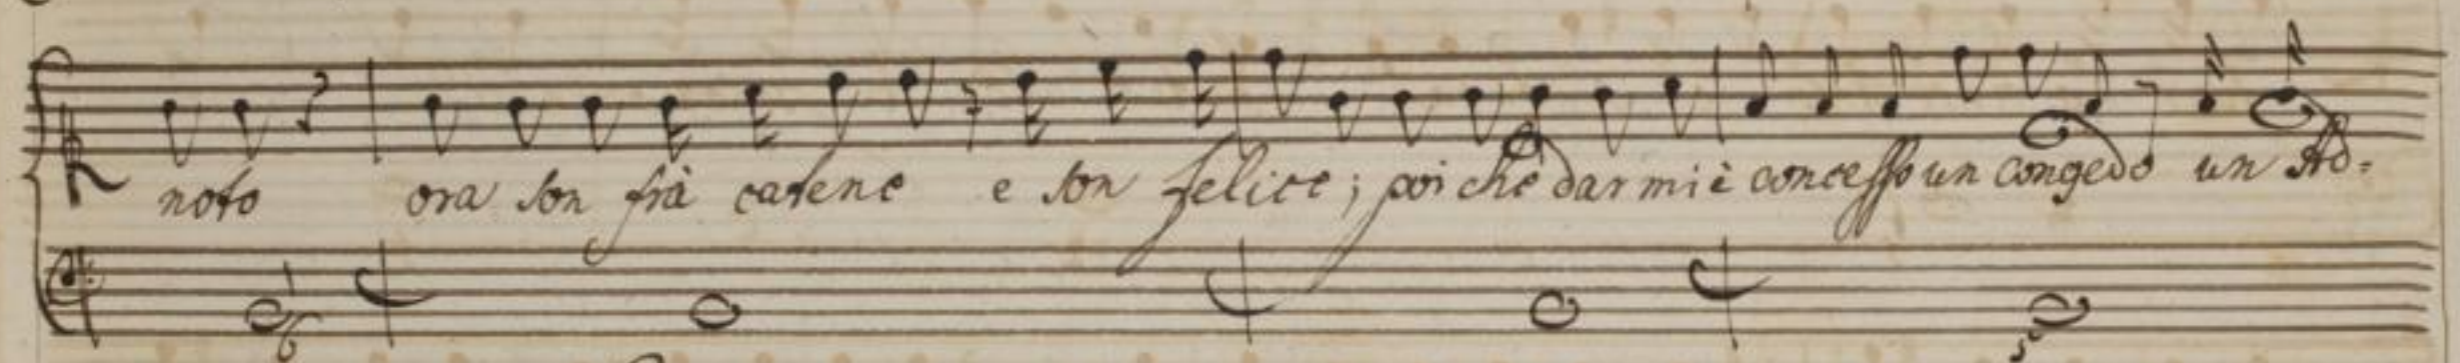 noto ora son frà catene e son felice; poi che darmi è concesso un congedo un Ad=
6
5